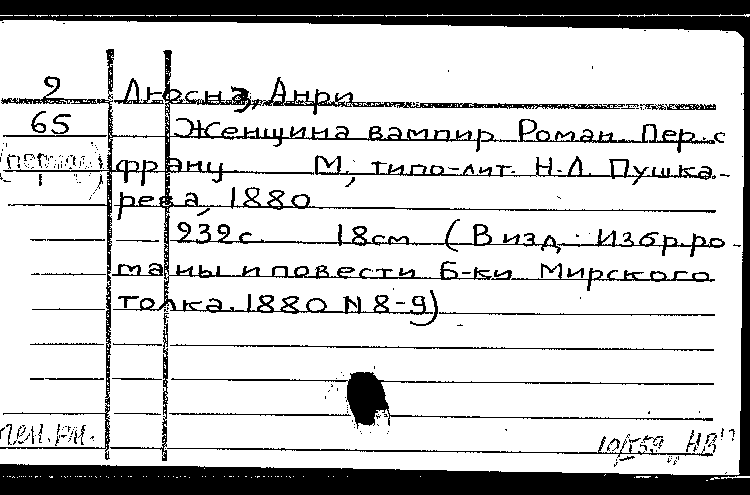 2 Люснэ, Анри
65 Женщина вампир Роман. Пер. с
франц. М., типо-лит. Н.Л. Пушка-
рева, 1880
232с. 18см (В изд.: Избр. ро-
маны и повести Б-ки Мирского
толка. 1880 N 8-9)